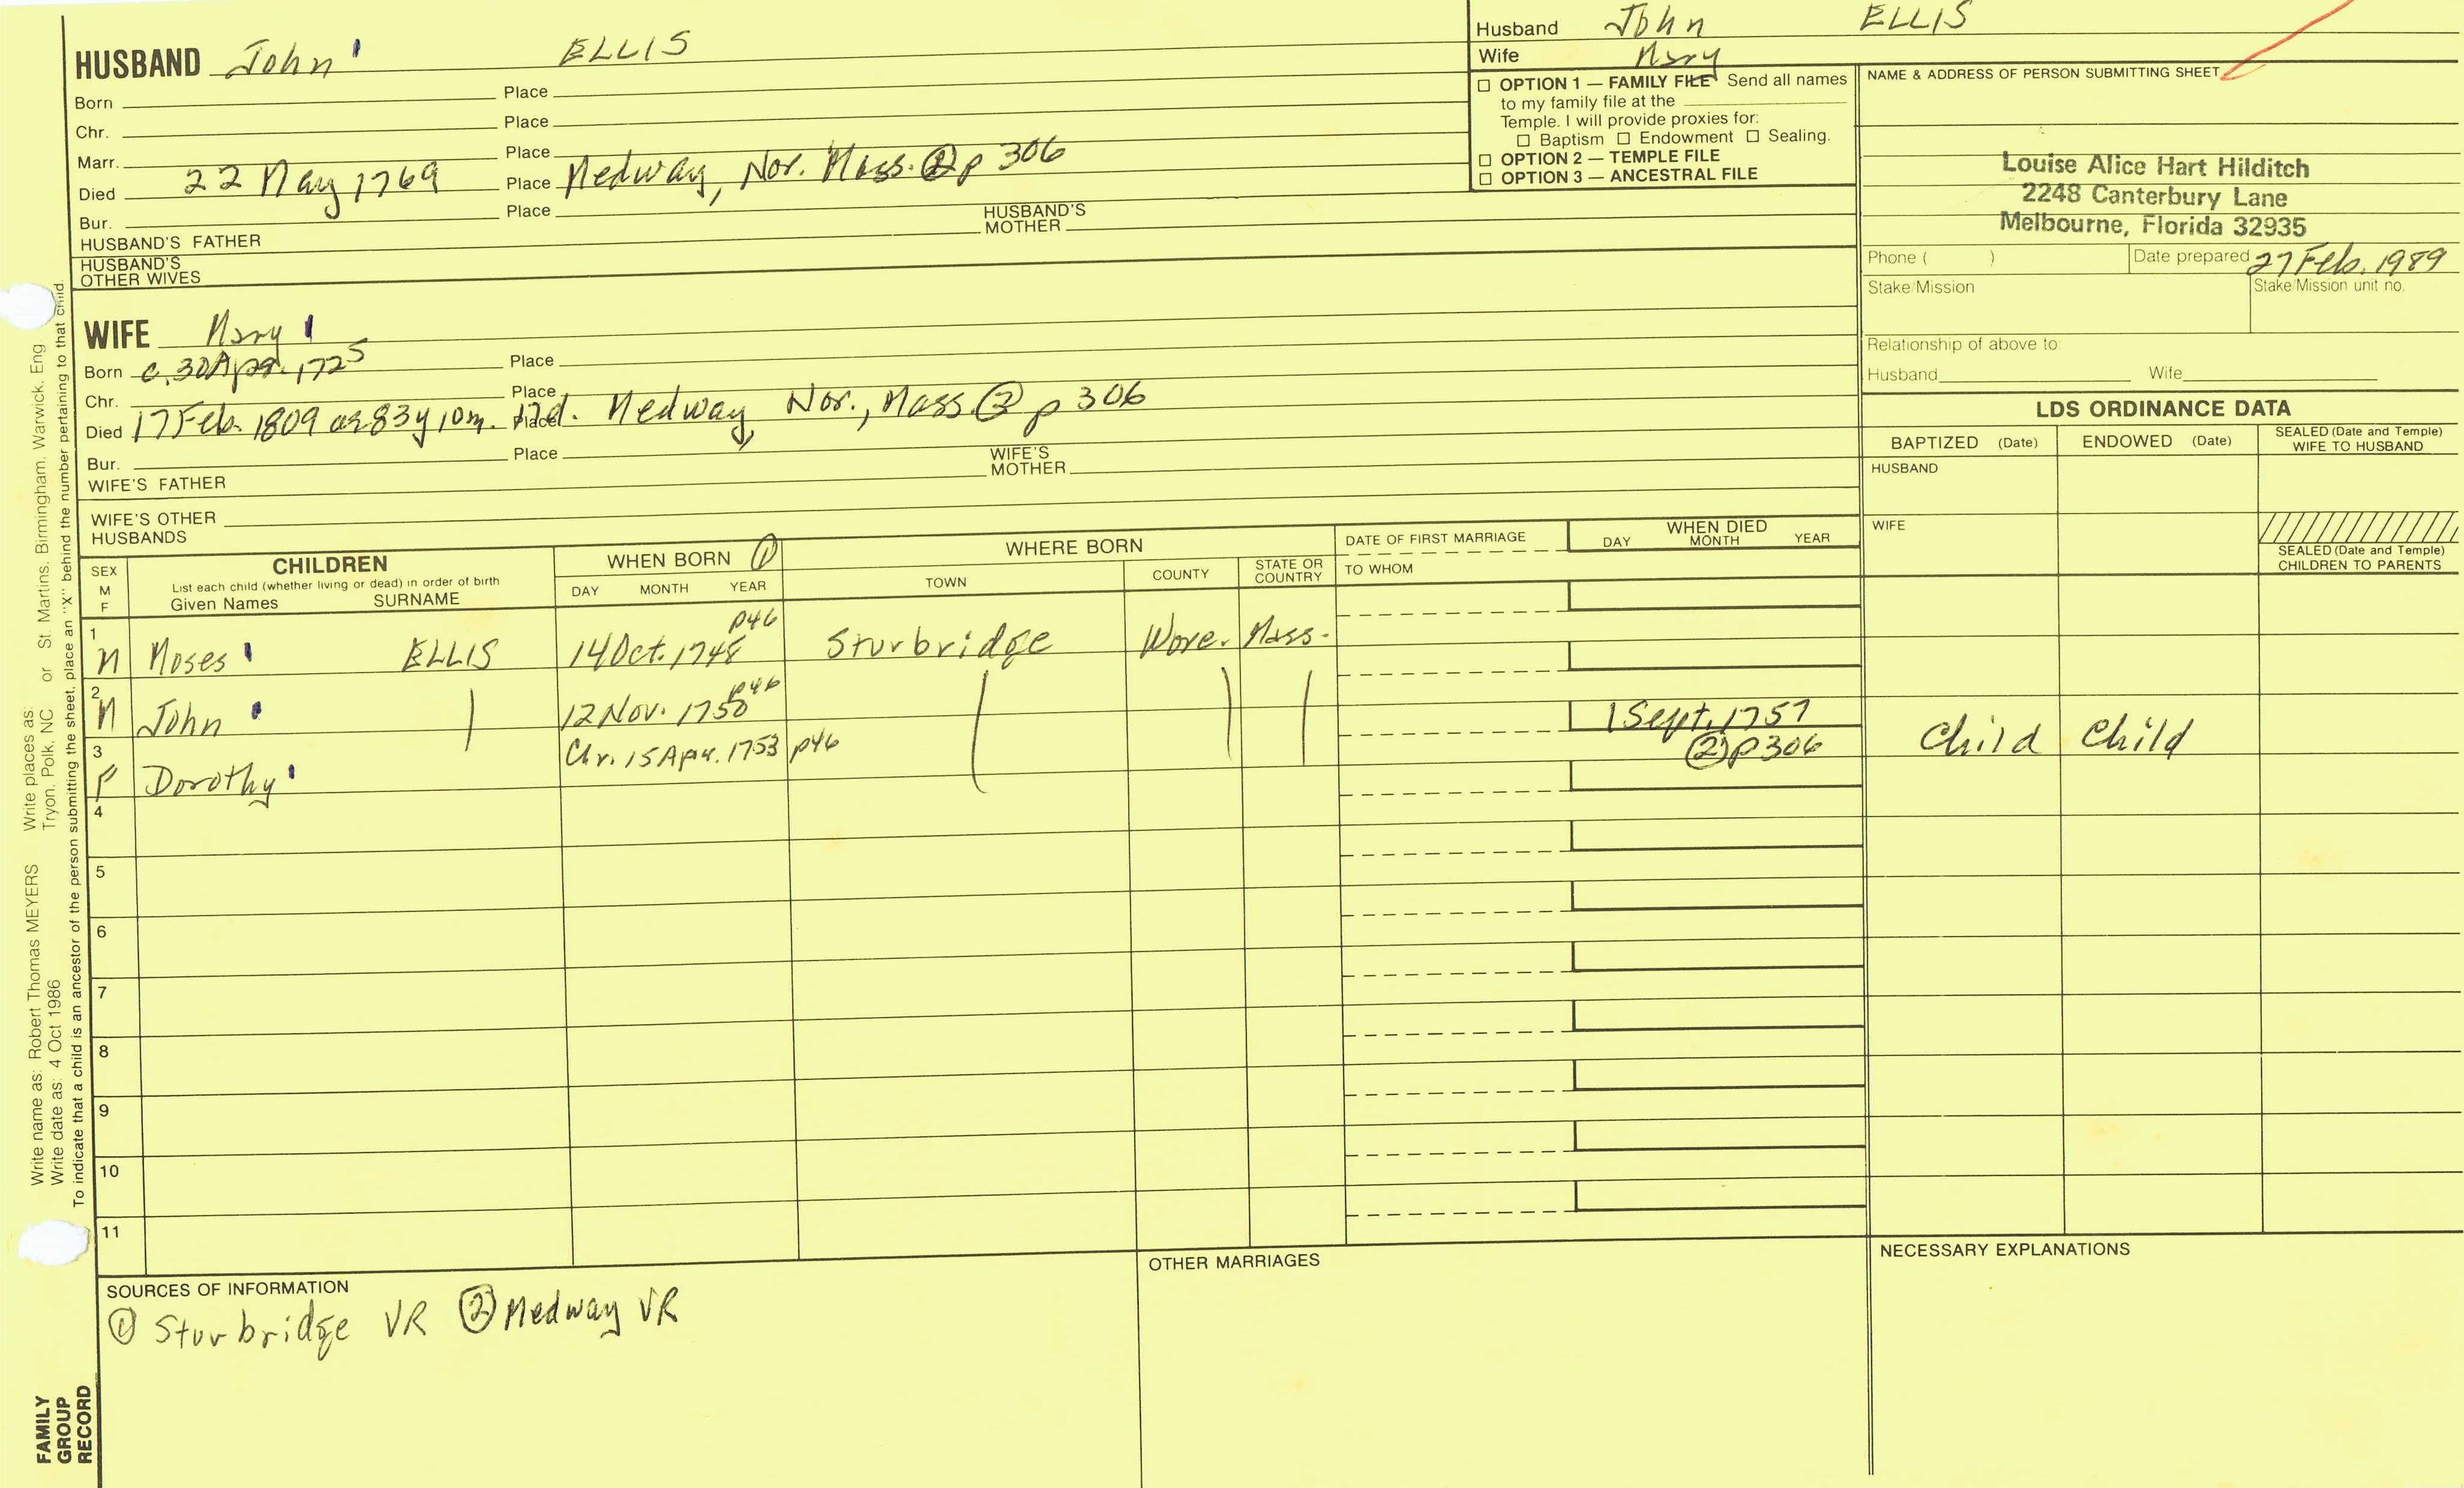 HUSBAND John ELLIS
Born Place
Chr. Place
Marr. Place
Died 22 May 1769 Place Medway, Nor. Mass. ② p 306
Bur. Place
HUSBAND'S FATHER HUSBAND'S MOTHER
HUSBAND'S OTHER WIVES
WIFE Mary
Born c. 30 Apr. 1725 Place
Chr. Place
Died 17 Feb. 1809 as 83y 10m. 17d. Place Medway, Nor., Mass ② p 306
Bur. Place
WIFE'S FATHER WIFE'S MOTHER
WIFE'S OTHER HUSBANDS
Husband John ELLIS
Wife Mary
☐ OPTION 1 — FAMILY FILE Send all names
to my family file at the
Temple. I will provide proxies for:
☐ Baptism ☐ Endowment ☐ Sealing.
☐ OPTION 2 — TEMPLE FILE
☐ OPTION 3 — ANCESTRAL FILE
NAME & ADDRESS OF PERSON SUBMITTING SHEET
Louise Alice Hart Hilditch
2248 Canterbury Lane
Melbourne, Florida 32935
Phone ( ) Date prepared 27 Feb. 1989
Stake/Mission Stake/Mission unit no.
Relationship of above to:
Husband Wife
LDS ORDINANCE DATA
BAPTIZED (Date) ENDOWED (Date) SEALED (Date and Temple) WIFE TO HUSBAND
HUSBAND
WIFE
SEALED (Date and Temple) CHILDREN TO PARENTS
SEX M F
CHILDREN
List each child (whether living or dead) in order of birth
Given Names SURNAME
WHEN BORN ①
DAY MONTH YEAR
WHERE BORN
TOWN COUNTY STATE OR COUNTRY
DATE OF FIRST MARRIAGE
TO WHOM
WHEN DIED
DAY MONTH YEAR
1 M Moses ELLIS 14 Oct. 1748 p46 Sturbridge Worc. Mass.
2 M John 12 Nov. 1750 p46 1 Sept. 1757 ② p 306 Child Child
3 F Dorothy Chr. 15 Apr. 1753 p46
4
5
6
7
8
9
10
11
SOURCES OF INFORMATION
① Sturbridge VR ② Medway VR
OTHER MARRIAGES
NECESSARY EXPLANATIONS
Write name as: Robert Thomas MEYERS Write places as: Tryon, Polk, NC or St. Martins, Birmingham, Warwick, Eng
Write date as: 4 Oct 1986
To indicate that a child is an ancestor of the person submitting the sheet, place an "X" behind the number pertaining to that child.
FAMILY
GROUP
RECORD